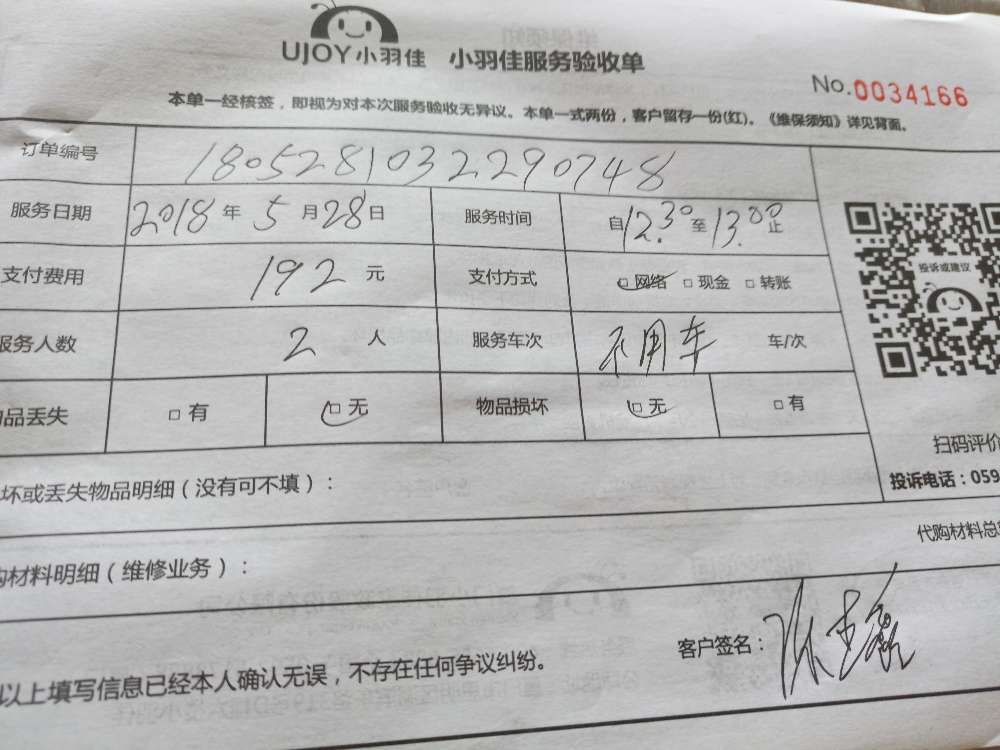 UJOY小羽佳 小羽佳服务验收单
No.0034166
本单一经核签，即视为对本次服务验收无异议。本单一式两份，客户留存一份(红)。《维保须知》详见背面。
订单编号 1805281032290748
服务日期 2018年5月28日 服务时间 自12.30至13.00止
支付费用 192元 支付方式 □网络 □现金 □转账
服务人数 2人 服务车次 不用车 车/次
品丢失 □有 □无 物品损坏 □无 □有
投诉或建议
扫码评价
投诉电话：059
坏或丢失物品明细（没有可不填）：
代购材料总
购材料明细（维修业务）：
客户签名：
以上填写信息已经本人确认无误，不存在任何争议纠纷。